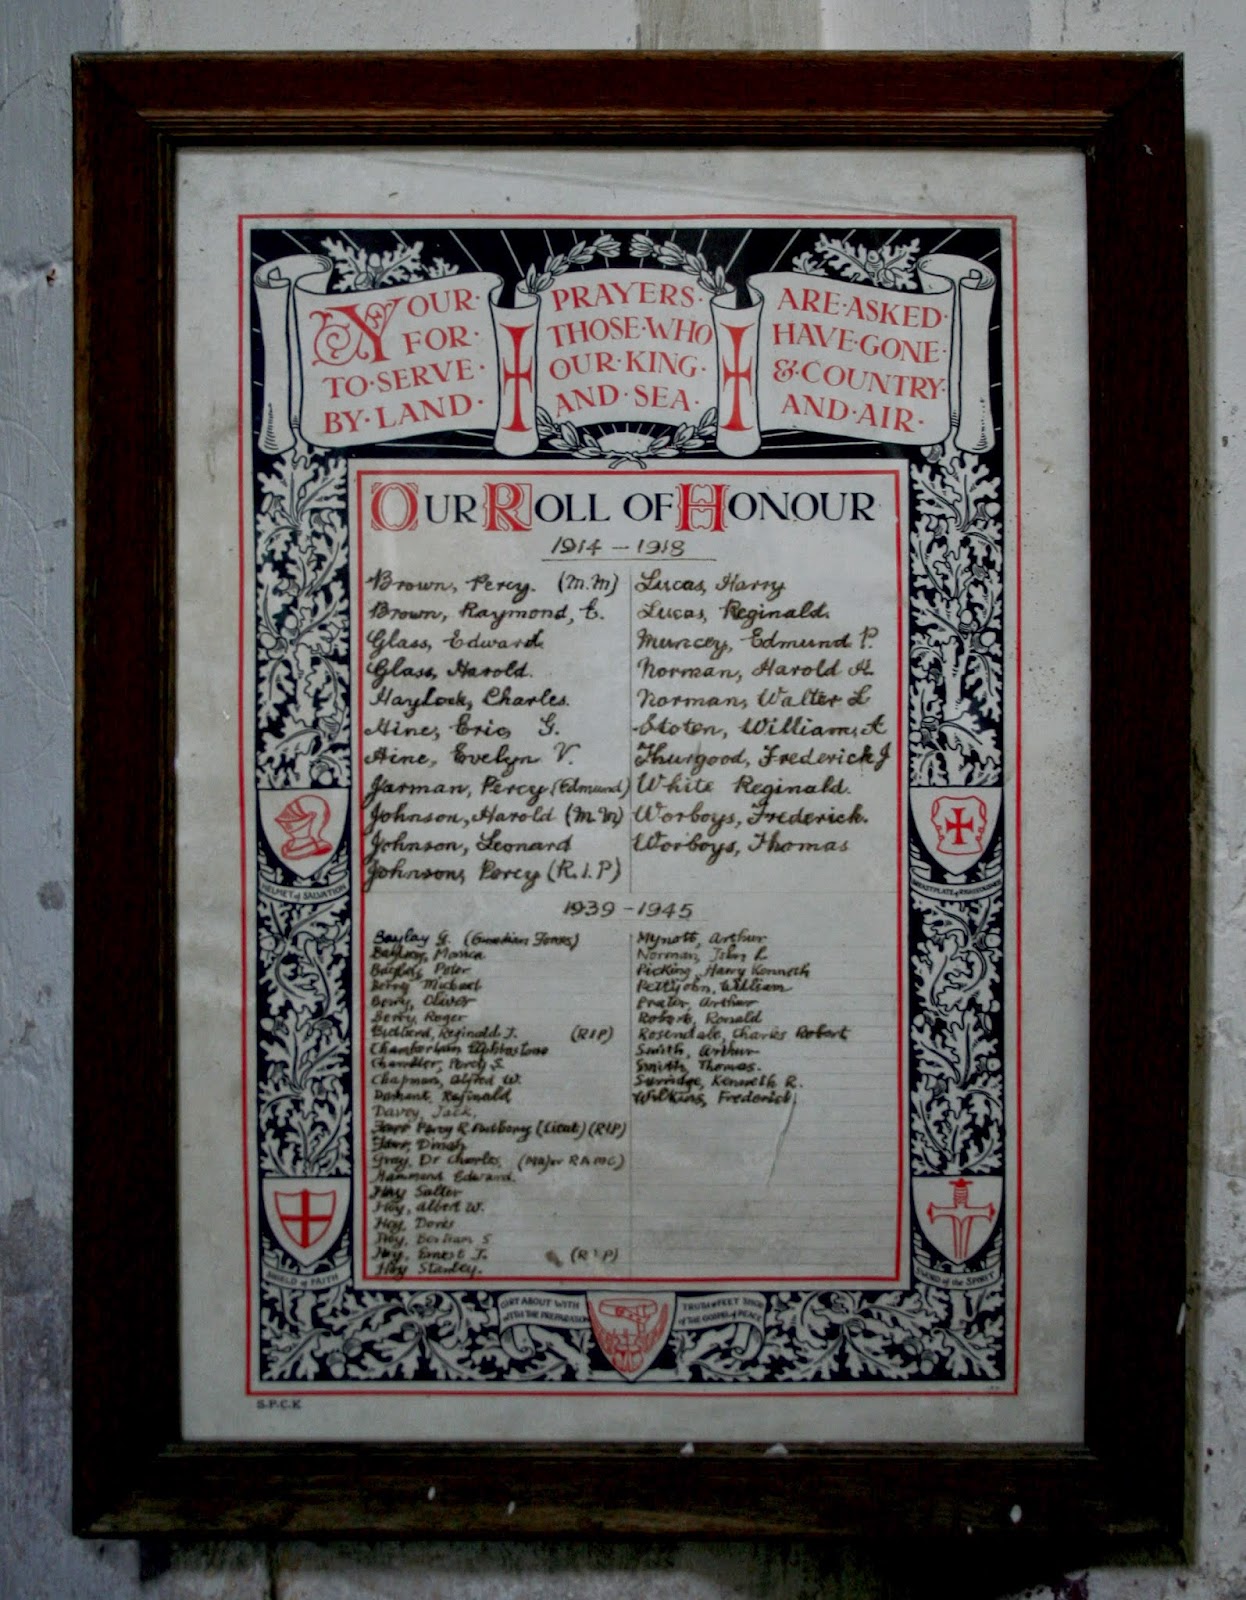 YOUR · PRAYERS · ARE · ASKED ·
FOR · THOSE · WHO HAVE · GONE ·
TO · SERVE · OUR · KING · & · COUNTRY ·
BY · LAND · AND · SEA · AND · AIR ·
OUR ROLL OF HONOUR
1914 – 1918
Brown, Percy. (M.M)
Brown, Raymond, C.
Glass, Edward.
Glass, Harold.
Haylock, Charles.
Hine, Eric G.
Hine, Evelyn V.
Jarman, Percy (Edmund)
Johnson, Harold (M.M)
Johnson, Leonard
Johnson, Percy (R.I.P)
Lucas, Harry
Lucas, Reginald.
Muncey, Edmund P.
Norman, Harold H.
Norman, Walter L
Stoten, William, A
Thurgood, Frederick J
White Reginald.
Worboys, Frederick.
Worboys, Thomas
1939 – 1945
Baylay G. (Guardian Forces)
Monica
Peter
Berry Michael
Berry, Oliver
Berry, Roger
Reginald J. (RIP)
Chamberlain
Chandler, Percy S.
Chapman, Alfred W.
Damant, Reginald
Davey, Jack,
Farr Percy R. Anthony (Lieut) (RIP)
Farr, Dinah
Gray, Dr Charles, (Major RAMC)
Hammond Edward.
Hoy Salter
Hoy, Albert W.
Hoy, Doris
Hoy, Bertram S
Hoy, Ernest J. (RIP)
Hoy Stanley.
Mynott, Arthur
Norman, John L.
Picking, Harry Kenneth
Pettyohn, William
Prater, Arthur
Robert, Ronald
Rosendale, Charles Robert
Smith, Arthur
Smith, Thomas.
Surridge, Kenneth R.
Wilkins, Frederick
HELMET of SALVATION
BREASTPLATE of RIGHTEOUSNESS
SHIELD of FAITH
SWORD of the SPIRIT
GIRT ABOUT WITH TRUTH & FEET SHOD
WITH THE PREPARATION of the GOSPEL of PEACE
S.P.C.K